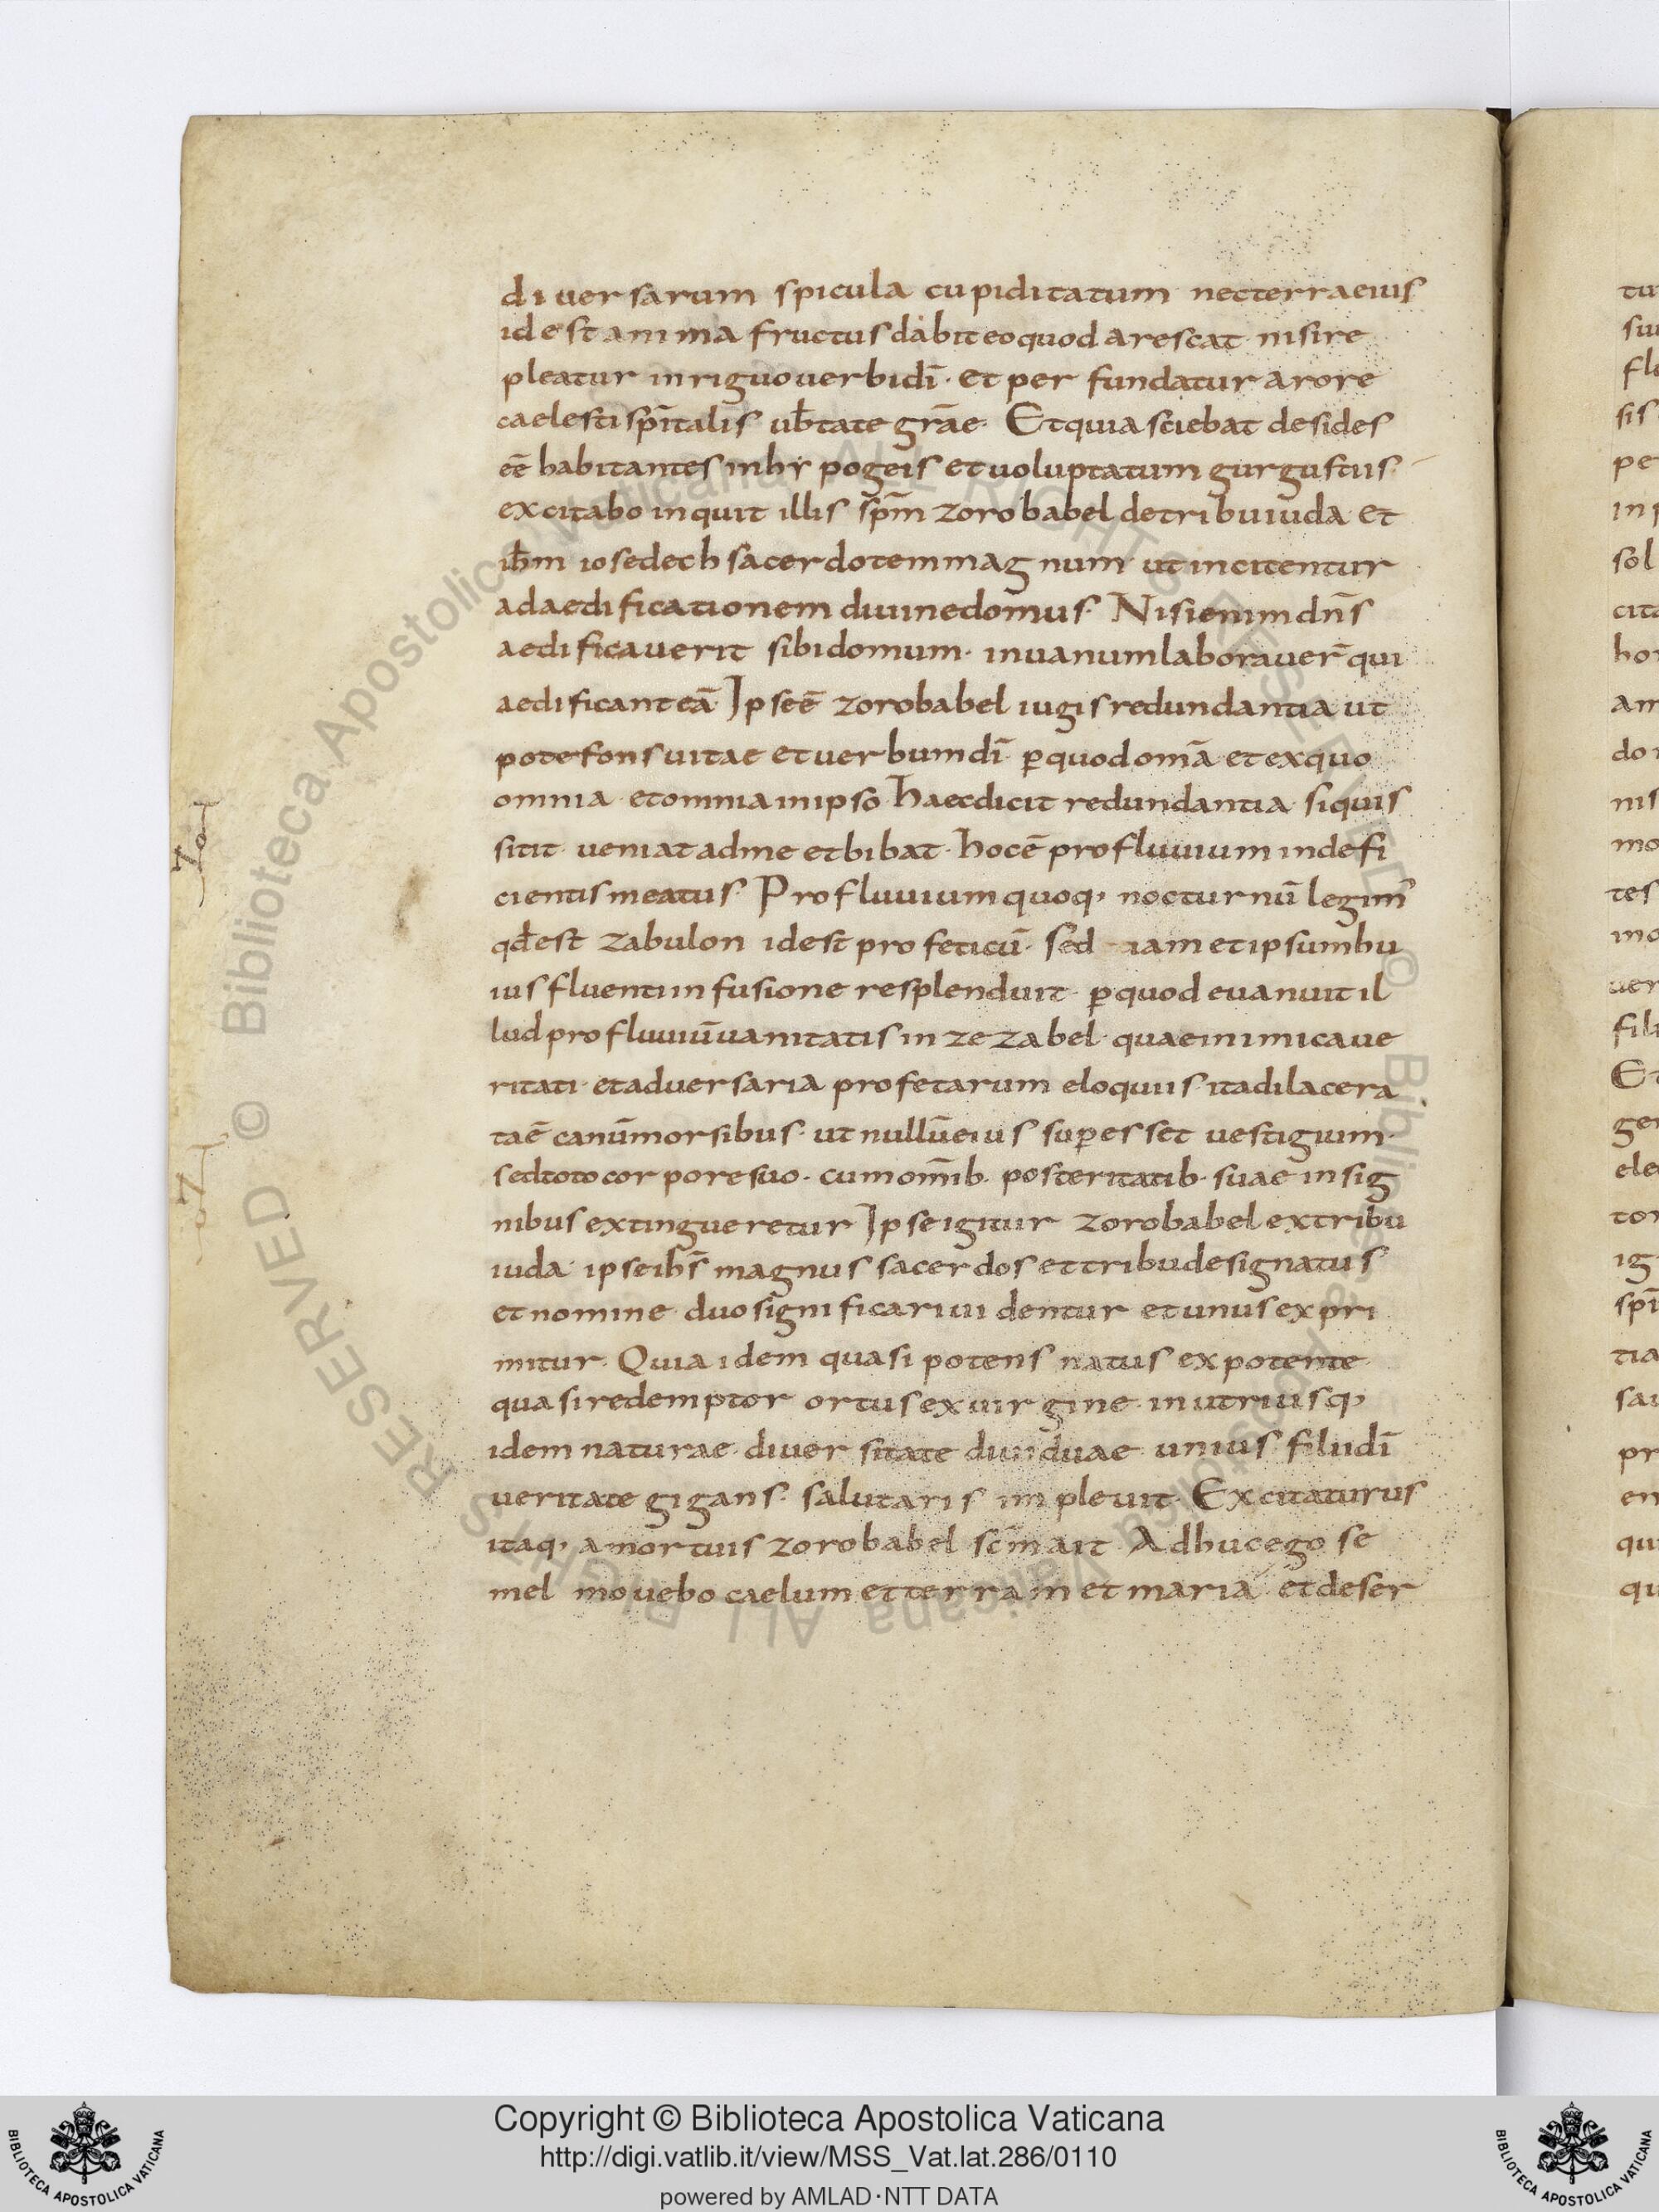 diuersarum spicula cupiditatum nec terra eius
id est anima fructus dabit eo quod arescat nisi re
pleatur inriguo uerbi dī· et perfundatur a rore
caelesti spītalis ub̄tate grāe· Et quia sciebat desides
eē habitantes in hypogeis et uoluptatum gurgustiis·
excitabo inquit illis sp̄m zorobabel de tribu iuda et
ih̄m iosedech sacerdotem magnum· ut incitentur
ad aedificationem diuine domus· Nisi enim dn̄s
aedificauerit sibi domum· in uanum laborauer̄ qui
aedificant eā Ipse ē zorobabel iugis redundantia ut
pote fons uitae et uerbum dī ꝑ quod om̄a et ex quo
omnia et omnia in ipso· haec dicit redundantia siquis
sitit ueniat ad me et bibat· hoc ē profluuium indefi
cientis meatus· Profluuium quoq, nocturnū legim̄
qđ est zabulon id est profeticū· sed iam et ipsum hu
ius fluenti infusione resplenduit· ꝑ quod euanuit il
lud profluuiū uanitatis in zezabel· quae inimica ue
ritati· et aduersaria profetarum eloquiis· ita dilacera
ta ē canū morsibus· ut nullū eius suꝑesset uestigium·
sed toto corpore suo· cum om̄ib· posteritatib· suae insig
nibus extingueretur Ipse igitur zorobabel ex tribu
iuda ipse ih̄s magnus sacerdos et tribu designatus
et nomine duo significari uidentur et unus expri
mitur· Quia idem quasi potens natus ex potente
quasi redemptor ortus ex uirgine· in utriusq,
idem naturae diuersitate duum duae unius filii dī
ueritate gigans· salutaris impleuit· Excitaturus
itaq, a mortuis zorobabel sc̄m ait Adhuc ego se
mel mouebo caelum et terram et maria et deser
Copyright © Biblioteca Apostolica Vaticana
http://digi.vatlib.it/view/MSS_Vat.lat.286/0110
powered by AMLAD·NTT DATA
BIBLIOTECA APOSTOLICA VATICANA
BIBLIOTECA APOSTOLICA VATICANA